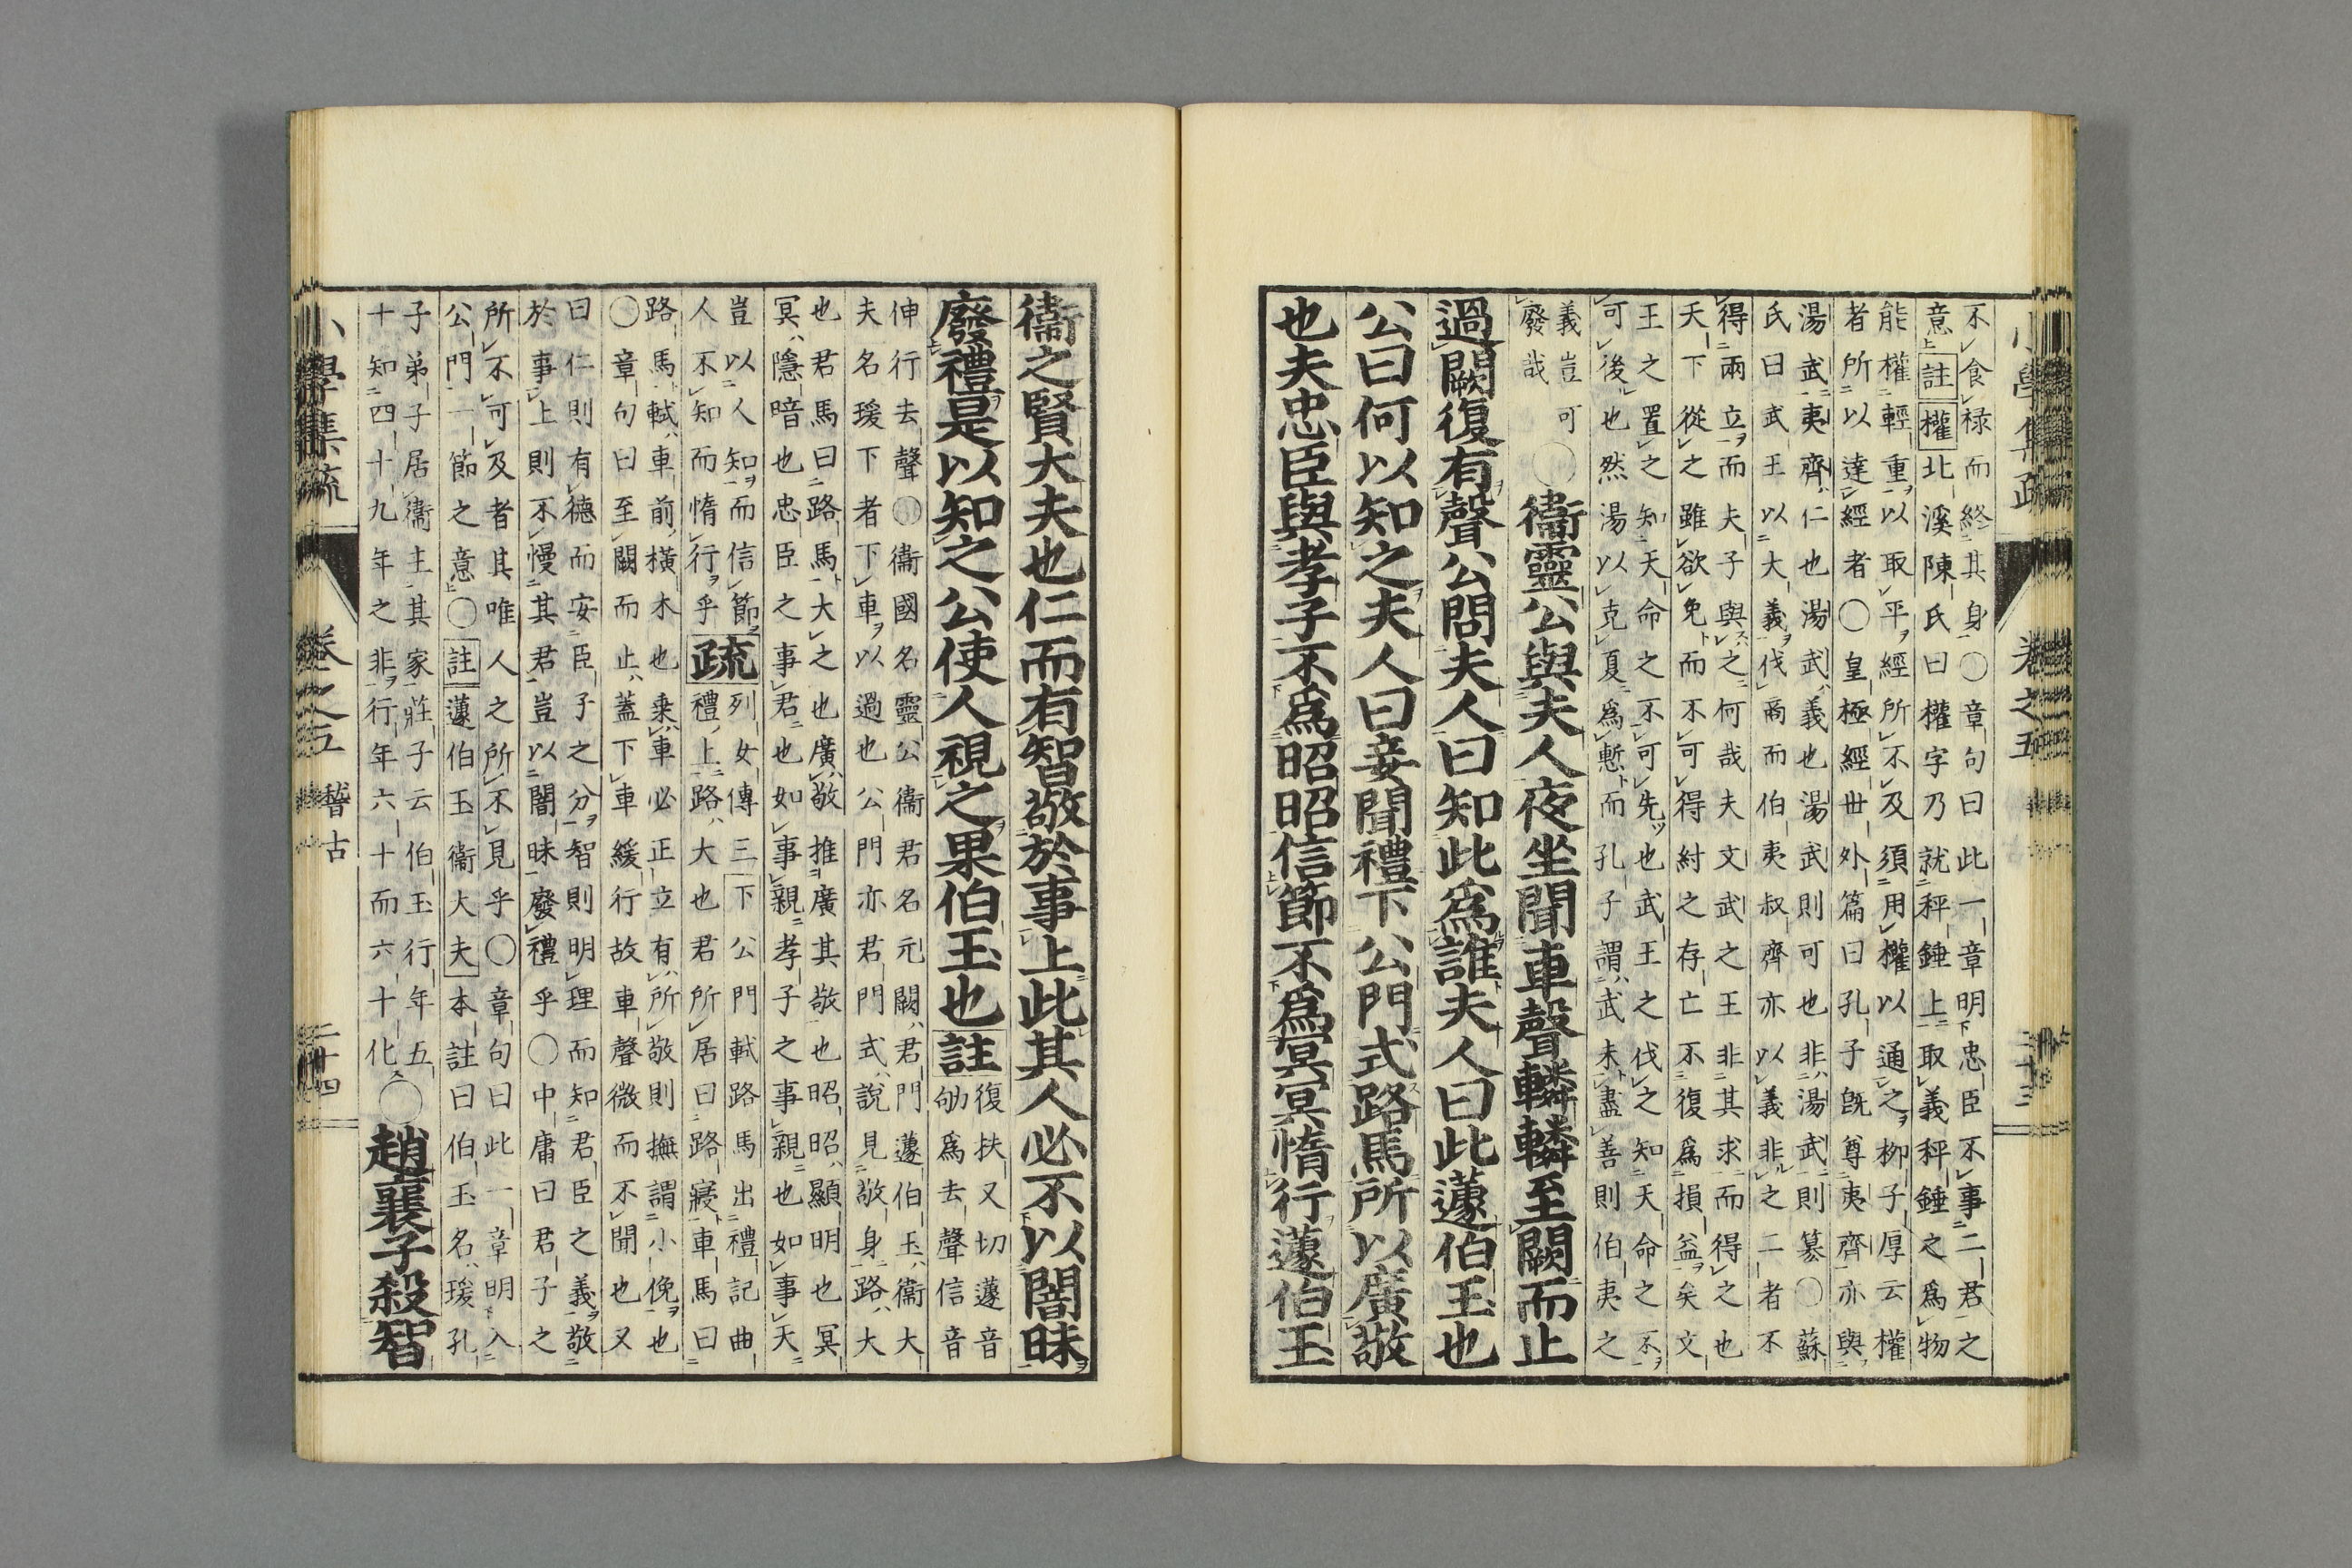 小學集疏 卷之五 二十三
不食祿而終其身○章句曰此一章明忠臣不事二君之
意註權北溪陳氏曰權字乃就秤錘上取義秤錘之爲物
能權輕重以取平經所不及須用權以通之柳子厚云權
者所以達經者○皇極經世外篇曰孔子旣尊夷齊亦與
湯武夷齊仁也湯武義也湯武則可也非湯武則簒○蘇
氏曰武王以大義伐商而伯夷叔齊亦以義非之二者不
得兩立而夫子與之何哉夫文武之王非其求而得之也
天下從之雖欲免而不可得紂之存亡不復爲損益矣文
王之置之知天命之不可先也武王之伐之知天命之不
可後也然湯以克夏爲慙而孔子謂武未盡善則伯夷之
義豈可
廢哉
○衞靈公與夫人夜坐聞車聲轔轔至闕而止
過闕復有聲公問夫人曰知此爲誰夫人曰此蘧伯玉也
公曰何以知之夫人曰妾聞禮下公門式路馬所以廣敬
也夫忠臣與孝子不爲昭昭信節不爲冥冥惰行蘧伯玉
衞之賢大夫也仁而有智敬於事上此其人必不以闇昧
廢禮是以知之公使人視之果伯玉也註
復扶又切蘧音
劬爲去聲信音
伸行去聲○衞國名靈公衞君名元闕君門蘧伯玉衞大
夫名瑗下者下車以過也公門亦君門式說見敬身路大
也君馬曰路馬大之也廣敬推廣其敬也昭昭顯明也冥
冥隱暗也忠臣之事君也如事親孝子之事親也如事天
豈以人知而信節
人不知而惰行乎
疏
列女傳三下公門軾路馬出禮記曲
禮上路大也君所居曰路寢車馬曰
路馬軾車前橫木也乘車必正立有所敬則撫謂小俛也
○章句曰至闕而止蓋下車緩行故車聲微而不聞也又
曰仁則有德而安臣子之分智則明理而知君臣之義敬
於事上則不慢其君豈以闇昧廢禮乎○中庸曰君子之
所不可及者其唯人之所不見乎○章句曰此一章明入
公門一節之意○註蘧伯玉衞大夫本註曰伯玉名瑗孔
子弟子居衞主其家莊子云伯玉行年五
十知四十九年之非行年六十而六十化
○趙襄子殺智
小學集疏 卷之五 稽古 二十四